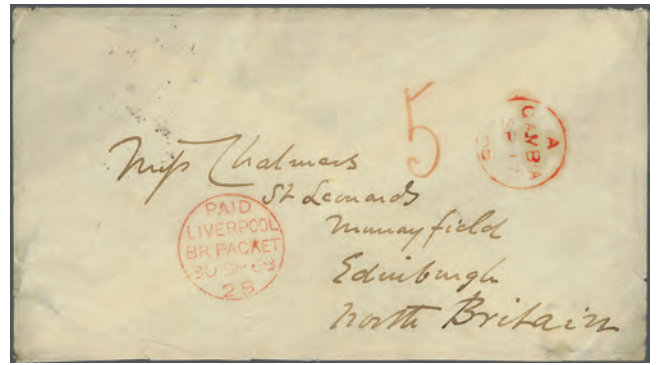 5
A
GAMBIA
SP 17
68
Miss Chalmers
St Leonards
Murrayfield
Edinburgh
North Britain
PAID
LIVERPOOL
BR PACKET
30 SP 68
2B